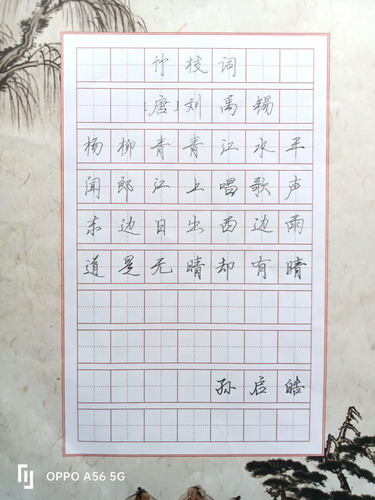 竹枝词
[唐]刘禹锡
杨柳青青江水平
闻郎江上唱歌声
东边日出西边雨
道是无晴却有晴
孙启皓
OPPO A56 5G